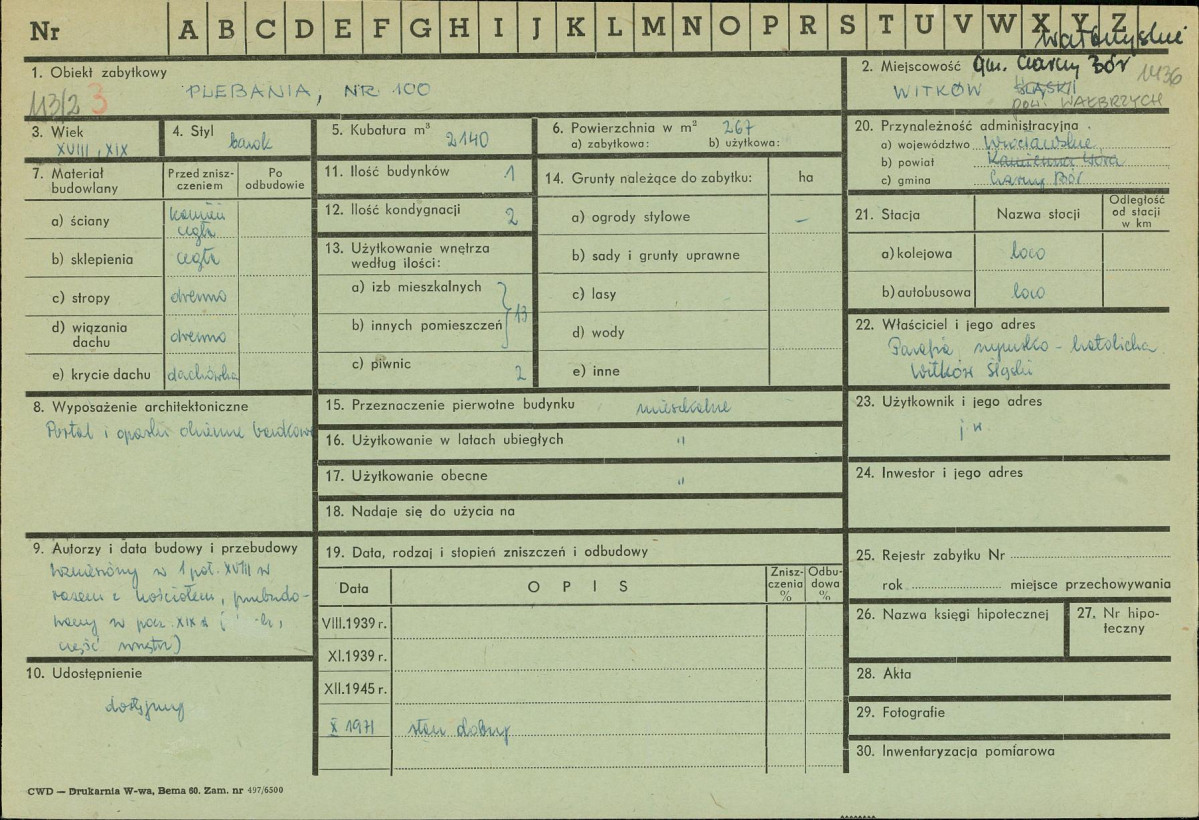 Nr A B C D E F G H I J K L M N O P R S T U V W X Y Z
wałbrzyskie
1. Obiekt zabytkowy
113/2 3
PLEBANIA, NR 100
2. Miejscowość gm. Czarny Bór 1436
WITKÓW ŚLĄSKI
pow. WAŁBRZYCH
3. Wiek
XVIII, XIX
4. Styl
barok
5. Kubatura m³
2140
6. Powierzchnia w m² 267
a) zabytkowa: b) użytkowa:
7. Materiał budowlany
Przed znisz-
czeniem
Po
odbudowie
a) ściany
kamień
cegła
b) sklepienia cegła
c) stropy drewno
d) wiązania
dachu drewno
e) krycie dachu dachówka
8. Wyposażenie architektoniczne
Portal i opaski okienne barokowe
9. Autorzy i data budowy i przebudowy
wzniesiony w 1 poł. XVIII w
razem z kościołem, przebudo-
wany w pocz. XIX w
część wnętrz)
10. Udostępnienie
dostępny
11. Ilość budynków 1
12. Ilość kondygnacji 2
13. Użytkowanie wnętrza
według ilości:
a) izb mieszkalnych
b) innych pomieszczeń 13
c) piwnic 2
14. Grunty należące do zabytku: ha
a) ogrody stylowe –
b) sady i grunty uprawne
c) lasy
d) wody
e) inne
15. Przeznaczenie pierwotne budynku mieszkalne
16. Użytkowanie w latach ubiegłych "
17. Użytkowanie obecne "
18. Nadaje się do użycia na
19. Data, rodzaj i stopień zniszczeń i odbudowy
Data OPIS
Znisz-
czenia
%
Odbu-
dowa
%
VIII.1939 r.
XI.1939 r.
XII.1945 r.
X 1971 stan dobry
20. Przynależność administracyjna
a) województwo Wrocławskie
b) powiat Kamienna Góra
c) gmina Czarny Bór
21. Stacja Nazwa stacji
Odległość
od stacji
w km
a) kolejowa loco
b) autobusowa loco
22. Właściciel i jego adres
Parafia rzymsko-katolicka
Witków Śląski
23. Użytkownik i jego adres
j w.
24. Inwestor i jego adres
25. Rejestr zabytku Nr
rok miejsce przechowywania
26. Nazwa księgi hipotecznej
27. Nr hipo-
teczny
28. Akta
29. Fotografie
30. Inwentaryzacja pomiarowa
CWD — Drukarnia W-wa, Bema 60. Zam. nr 497/6500